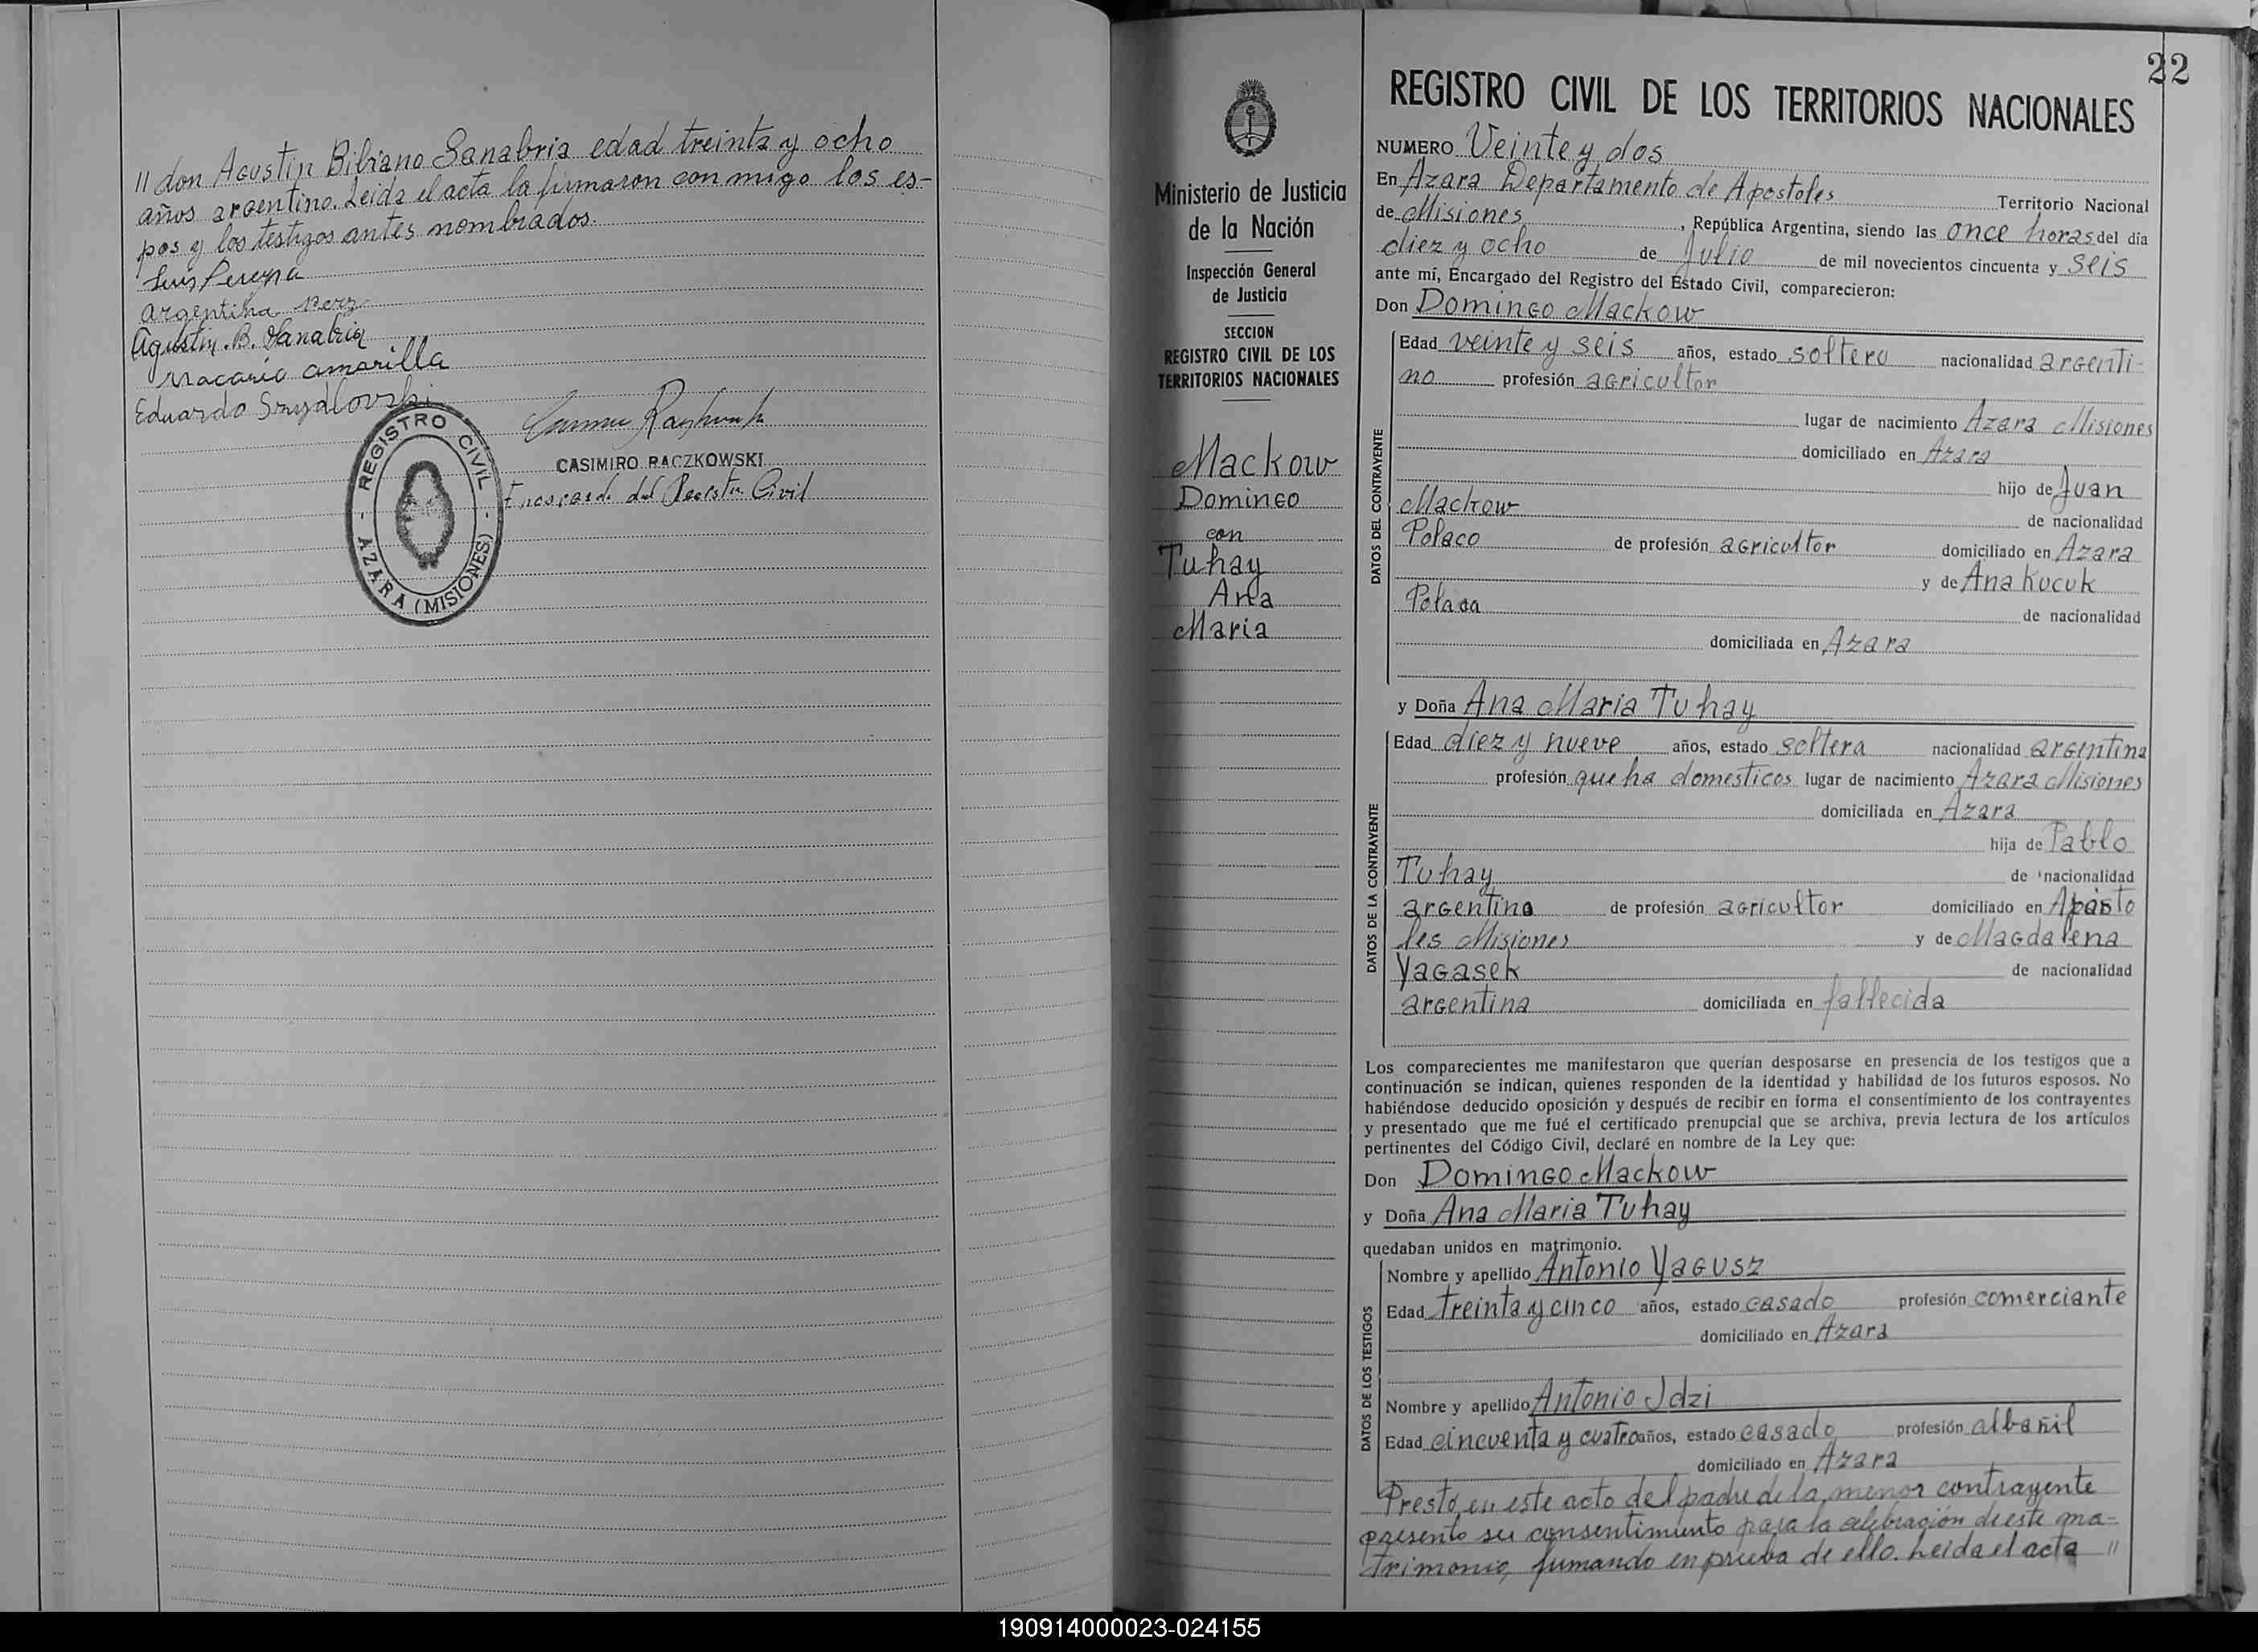 " don Agustin Bibiano Sanabria edad treinta y ocho
años argentino. Leida el acta la firmaron con migo los es-
pos y los testigos antes nombrados.
Luis Pereyra
Argentina
Agustin. B. Sanabria
Macario amarilla
Eduardo Szydlovski
REGISTRO CIVIL
- AZARA (MISIONES) -
CASIMIRO RACZKOWSKI
Encargado del Registro Civil
Ministerio de Justicia
de la Nación
Inspección General
de Justicia
SECCION
REGISTRO CIVIL DE LOS
TERRITORIOS NACIONALES
Mackow
Domingo
con
Tuhay
Ana
Maria
22
REGISTRO CIVIL DE LOS TERRITORIOS NACIONALES
NUMERO Veinte y dos
En Azara Departamento de Apostoles Territorio Nacional
de Misiones, República Argentina, siendo las once horas del día
diez y ocho de Julio de mil novecientos cincuenta y seis
ante mí, Encargado del Registro del Estado Civil, comparecieron:
Don Domingo Mackow
DATOS DEL CONTRAYENTE
Edad veinte y seis años, estado soltero nacionalidad argenti-
no profesión agricultor
lugar de nacimiento Azara Misiones
domiciliado en Azara
hijo de Juan
Mackow de nacionalidad
Polaco de profesión agricultor domiciliado en Azara
y de Ana Kucuk
Polaca de nacionalidad
domiciliada en Azara
y Doña Ana Maria Tuhay
DATOS DE LA CONTRAYENTE
Edad diez y nueve años, estado soltera nacionalidad argentina
profesión que ha domesticos lugar de nacimiento Azara Misiones
domiciliada en Azara
hija de Pablo
Tuhay de nacionalidad
argentino de profesión agricultor domiciliado en Aposto
les Misiones y de Magdalena
Yagasek de nacionalidad
argentina domiciliada en fallecida
Los comparecientes me manifestaron que querían desposarse en presencia de los testigos que a
continuación se indican, quienes responden de la identidad y habilidad de los futuros esposos. No
habiéndose deducido oposición y después de recibir en forma el consentimiento de los contrayentes
y presentado que me fué el certificado prenupcial que se archiva, previa lectura de los artículos
pertinentes del Código Civil, declaré en nombre de la Ley que:
Don Domingo Mackow
y Doña Ana Maria Tuhay
quedaban unidos en matrimonio.
DATOS DE LOS TESTIGOS
Nombre y apellido Antonio Yagusz
Edad treinta y cinco años, estado casado profesión comerciante
domiciliado en Azara
Nombre y apellido Antonio Idzi
Edad cincuenta y cuatro años, estado casado profesión albañil
domiciliado en Azara
Prestó en este acto del padre de la menor contrayente
presento su consentimiento para la celebración de este ma-
trimonio, firmando en prueba de ello. Leida el acta "
190914000023-024155